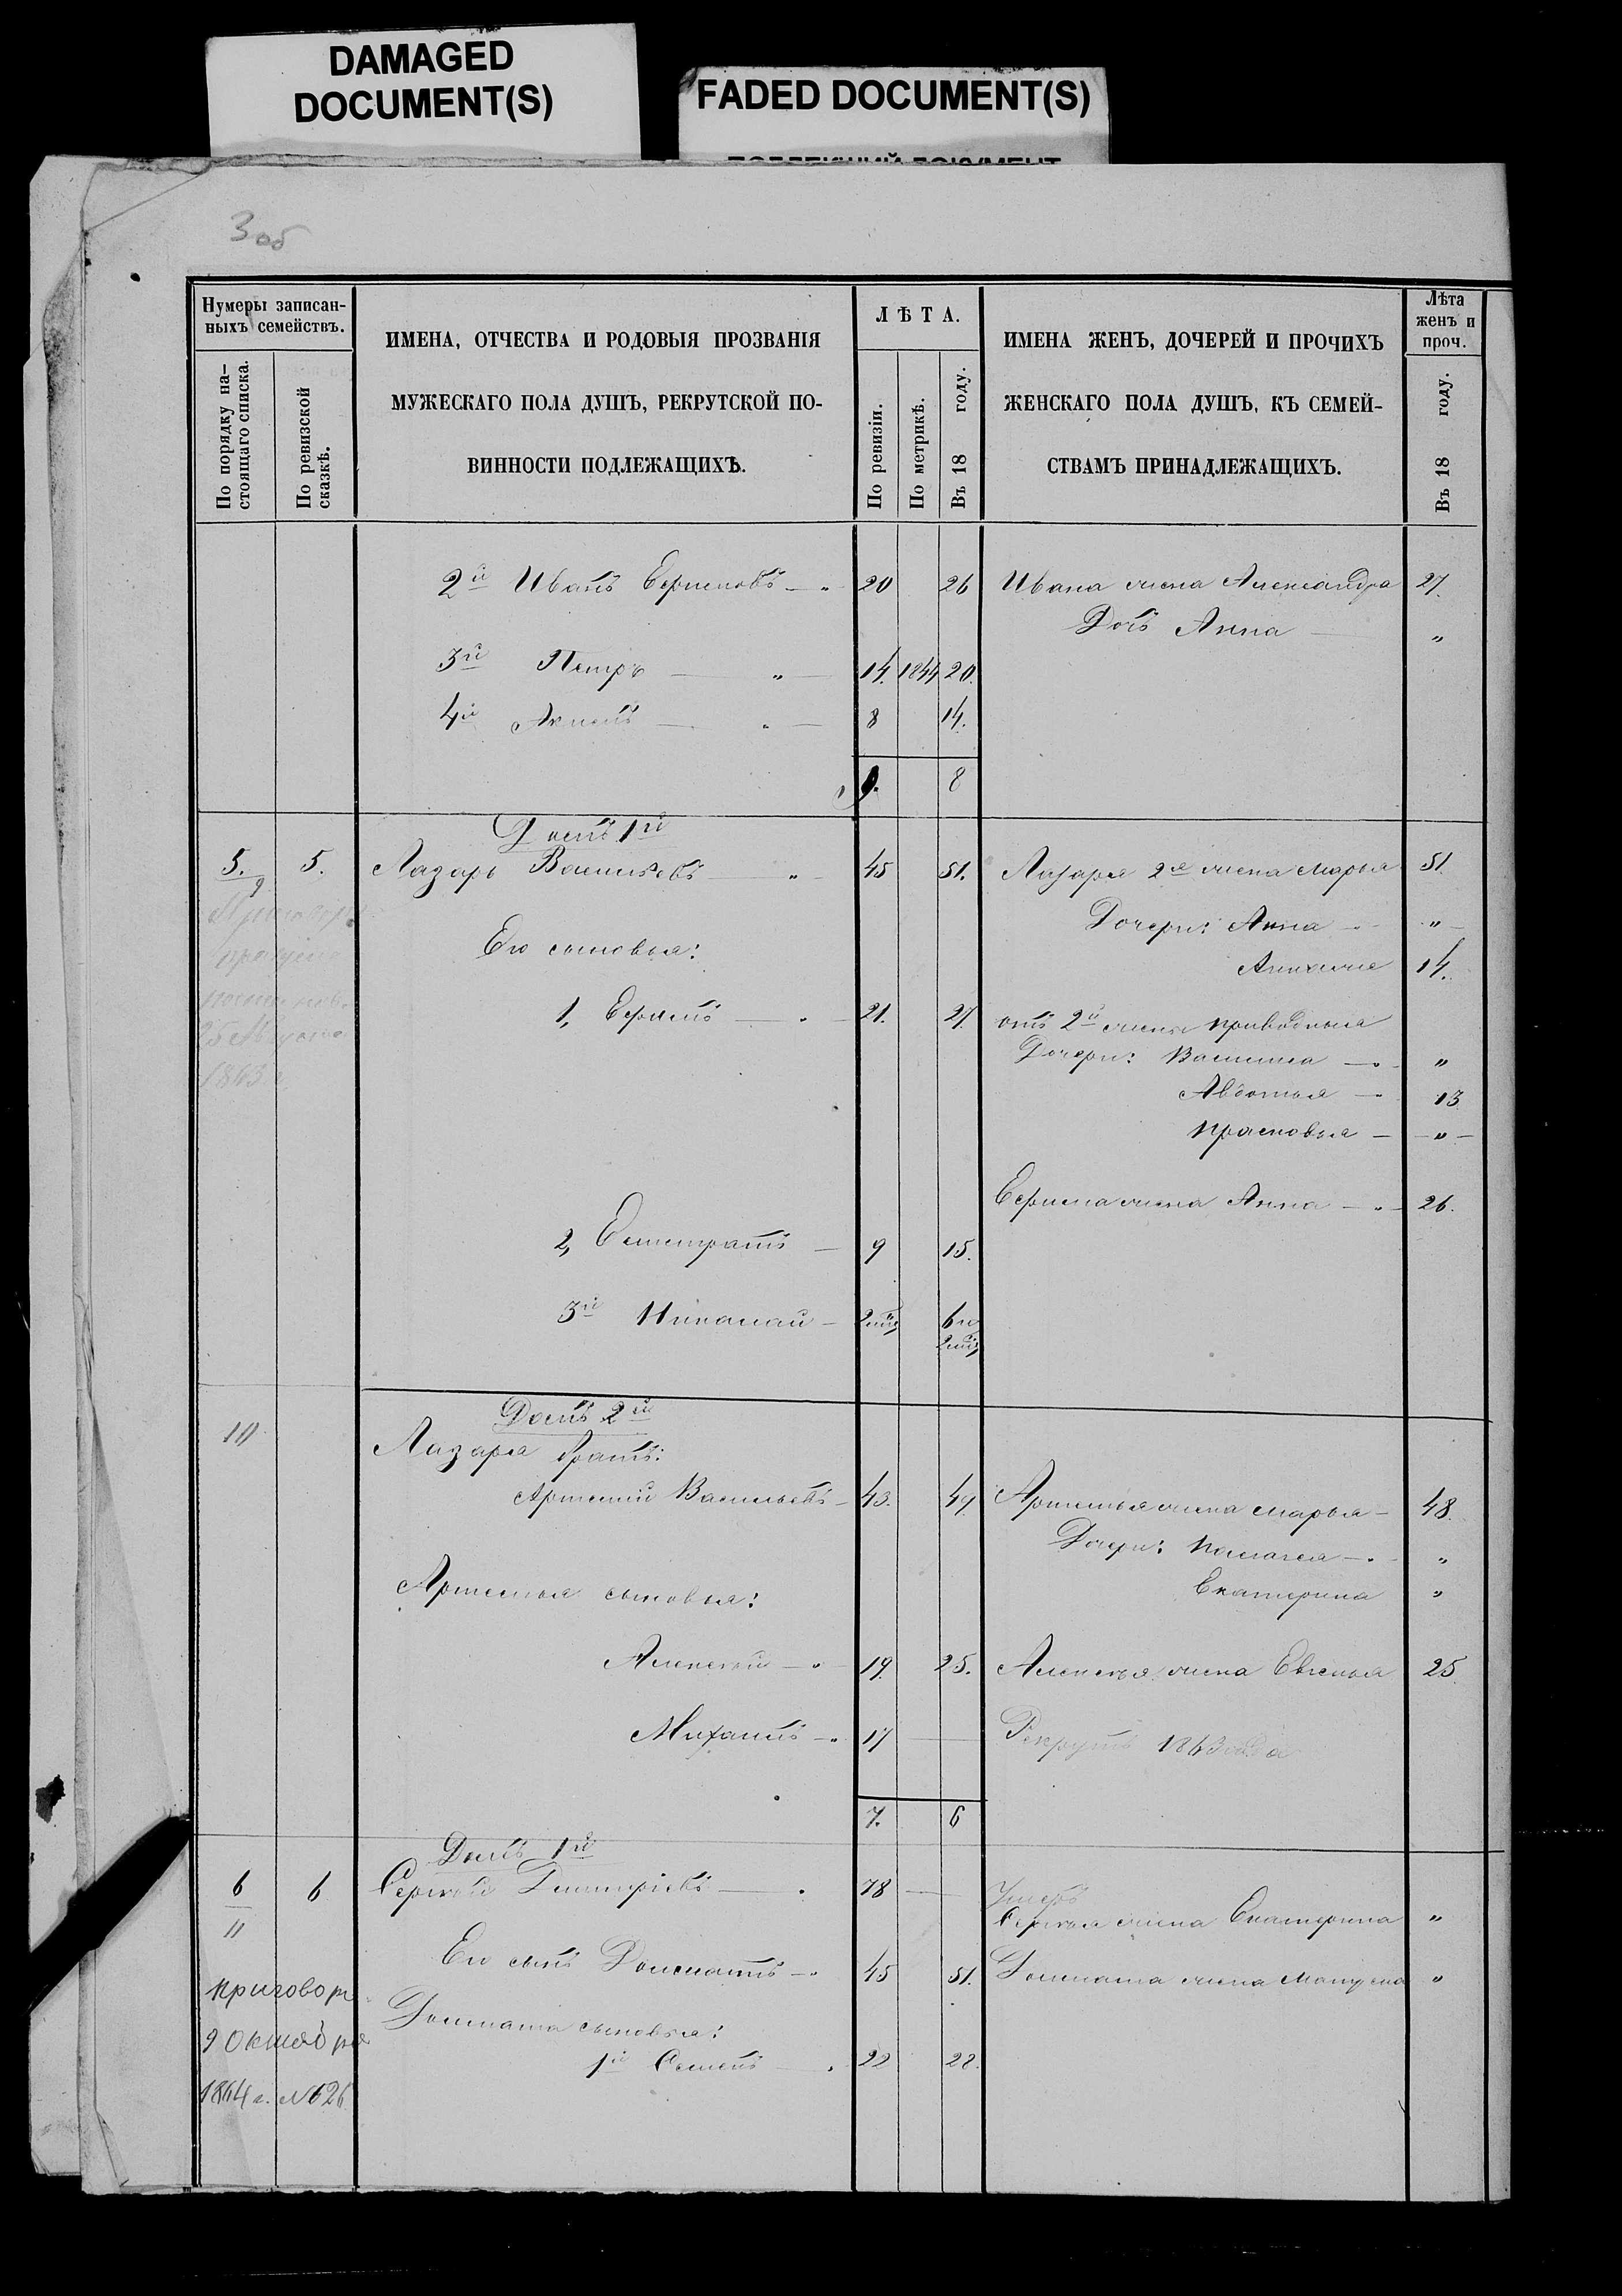 DAMAGED
DOCUMENT(S)
FADED DOCUMENT(S)
3 об
Нумеры записан-
ныхъ семействъ.
По порядку на-
стоящаго списка.
По ревизской
сказкѣ.
ИМЕНА, ОТЧЕСТВА И РОДОВЫЯ ПРОЗВАНІЯ
МУЖЕСКАГО ПОЛА ДУШЪ, РЕКРУТСКОЙ ПО-
ВИННОСТИ ПОДЛЕЖАЩИХЪ.
ЛѢТА.
По ревизіи.
По метрикѣ.
Въ 18 году.
ИМЕНА ЖЕНЪ, ДОЧЕРЕЙ И ПРОЧИХЪ
ЖЕНСКАГО ПОЛА ДУШЪ, КЪ СЕМЕЙ-
СТВАМЪ ПРИНАДЛЕЖАЩИХЪ.
Лѣта
женъ и
проч.
Въ 18 году.
2й Иванъ — „ 20 26 Ивана жена Александра 27.
Дочь Анна — „
3й Петръ — „ — 14. 1844 20.
4й — „ — 8 14.
9. 8
Домъ 1й
5. 5. Лазарь Васильевъ — „ 45 51. Лазаря 2я жена Марья 51
9
Дочери: Анна — „ —
Его сыновья:
14.
1, — 21. 27. отъ 2й жены приводныя
25 Августа
Дочери: Василиса — „
1863 г.
Авдотья — 13
Прасковья — „ —
жена Анна — 26.
2, — 9 15.
3й Николай — 2 мц 6 и
2 мц
Домъ 2й
10
Лазаря братъ:
Артемій Васильевъ — 43. 49. Артемья жена Марья — 48.
Дочери: Пелагея — „
Артемья сыновья:
Екатерина „
Алексѣй — 19. 25. Алексѣя жена Евгенья 25
Михаилъ — 17 — Рекрутъ 1863 года
7. 6
Домъ 1й
6 6 Сергѣй Дмитріевъ — 78 — Умеръ
Сергѣя жена Екатерина „
11
Его сынъ Долматъ — 45 51. Долмата жена „
приговоръ
Долмата сыновья:
9 Октября
1й Семенъ — 22 28.
1864 г. № 626